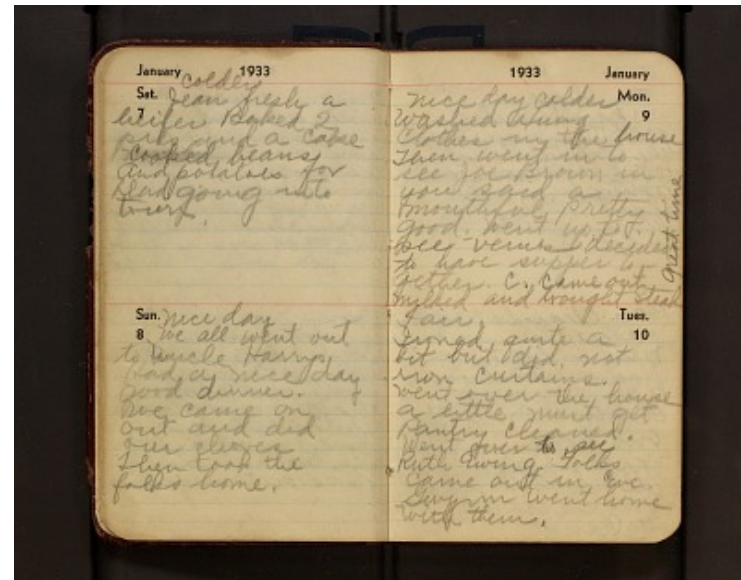 January 1933
Sat. colder
7 Jean fresh a
heifer Baked 2
pies and a cake
Cooked beans
and potatoes for
going into
town.
Sun. nice day
8 We all went out
to Uncle Harrys
had a nice day
good dinner.
We came on
out and did
our chores
Then took the
folks home.
1933 January
nice day colder Mon.
washed hung 9
clothes in the house
Then went in to
see Joe Brown in
you said a
mouthful, pretty
good. went up to
Bees decided
to have supper to
gether. C. came out
milked and brought steak
Great time
fair Tues.
Ironed quite a 10
bit but did not
iron curtains.
went over the house
a little must get
pantry cleaned.
Went over to see
Ruth Ewing. Folks
came out in Eve.
went home
with them.